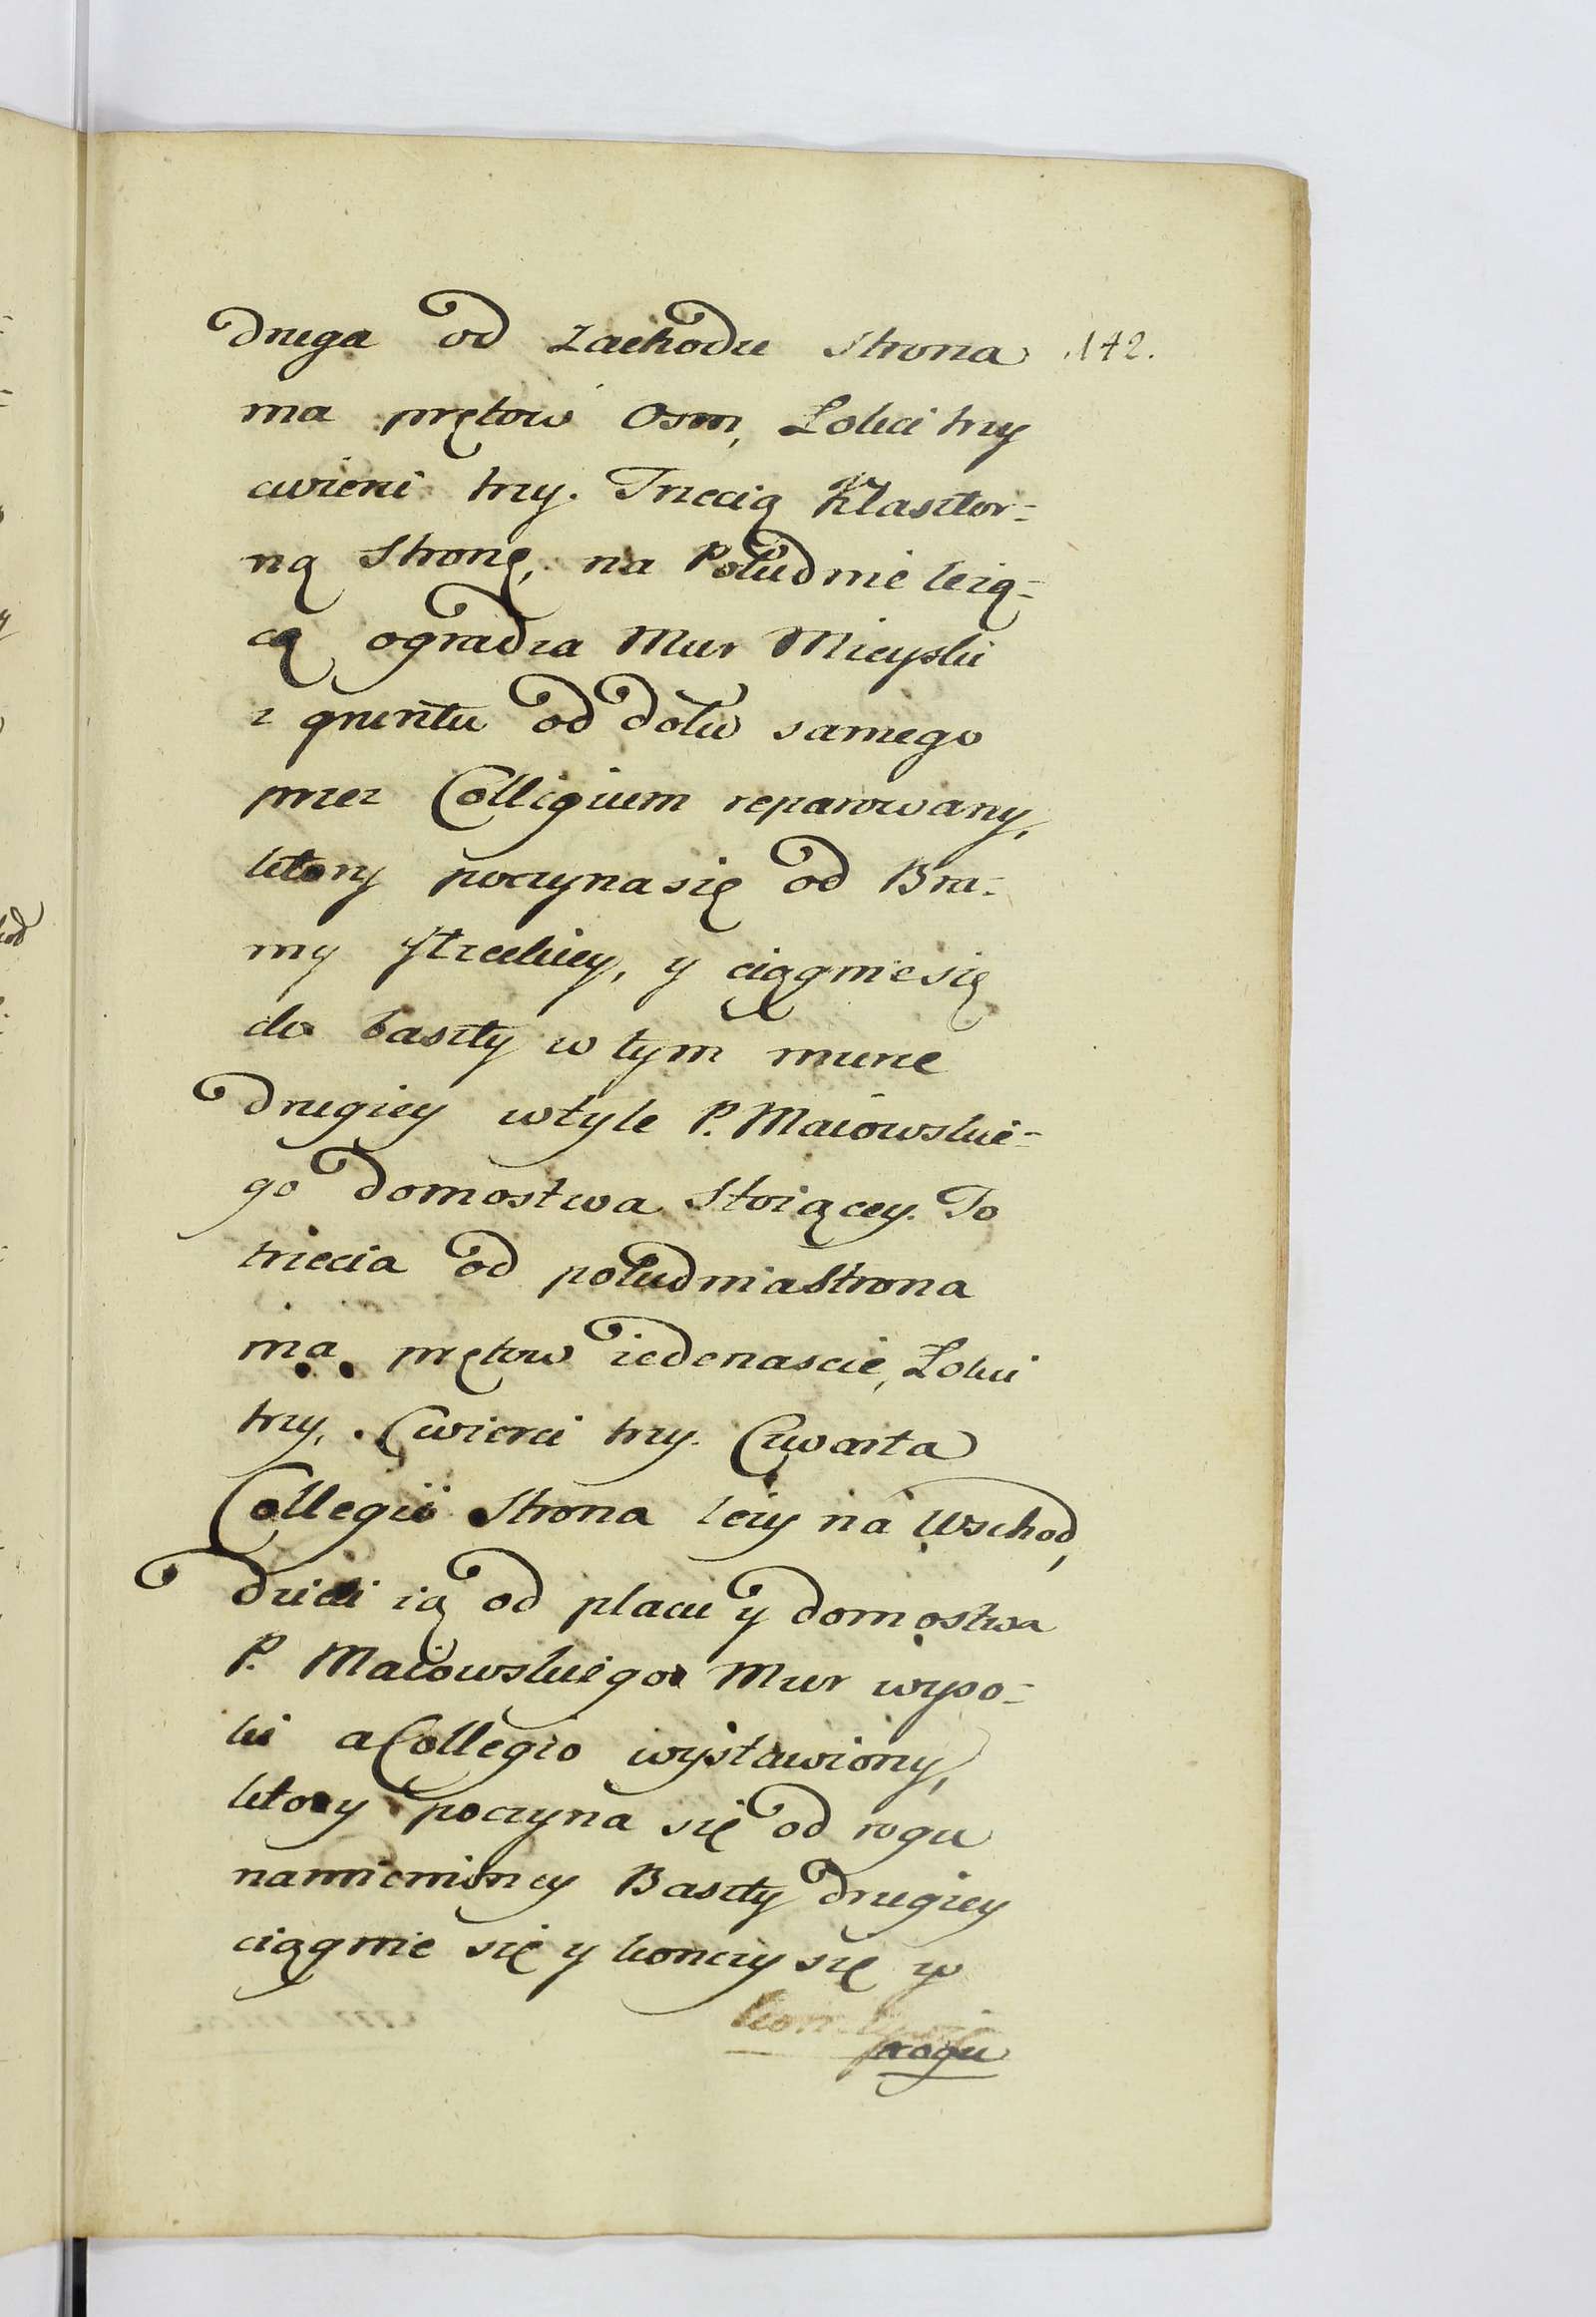 druga od zachodu strona 142.
ma prętow Osm, Łokci trzy
cwierci trzy. Trzecią Klasztor=
ną Stronę, na Południe leżą=
cą ogradza Mur Mieyski
z gruntu od dołu samego
przez Collegium reparowany,
ktory poczyna się od Bra=
my Strzeckiey, y ciągnie się
do baszty w tym murze
drugiey w tyle P. Maiowskie=
go domostwa Stoiącey. To
trzecia od południa Strona
ma prętow iedenascie, Łokci
trzy, Cwierci trzy. Czwarta
Collegii Strona leży na Wschod,
dzieli ią od placu y domostwa
P. Maiowskiego Mur wyso=
ki a Collegio wystawiony,
ktory poczyna się od rogu
namienioney Baszty drugiey
ciągnie się y konczy się w
rogu